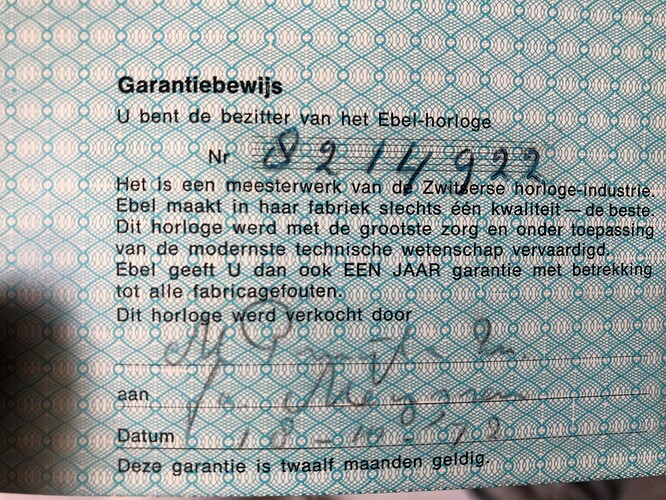 Garantiebewijs
U bent de bezitter van het Ebel-horloge
Nr 8214922
Het is een meesterwerk van de Zwitserse horloge-industrie.
Ebel maakt in haar fabriek slechts één kwaliteit — de beste.
Dit horloge werd met de grootste zorg en onder toepassing
van de modernste technische wetenschap vervaardigd.
Ebel geeft U dan ook EEN JAAR garantie met betrekking
tot alle fabricagefouten.
Dit horloge werd verkocht door
aan
Datum 18-10-72
Deze garantie is twaalf maanden geldig.